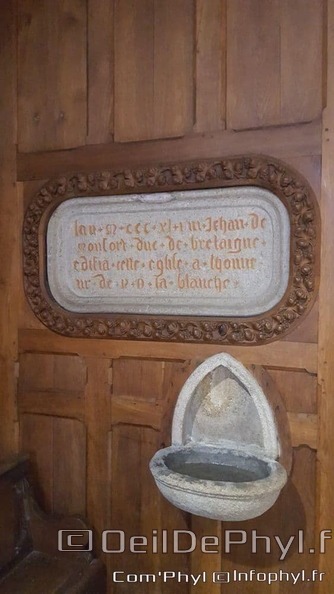 lan · m · ccc · xl · viii · Jehan · de ·
monfort · duc · de · bretaigne ·
edifia · cette · eglise · a · lhonne
ur · de · n · d · la · blanche ·
©OeilDePhyl.f
Com'Phyl ©Infophyl.fr